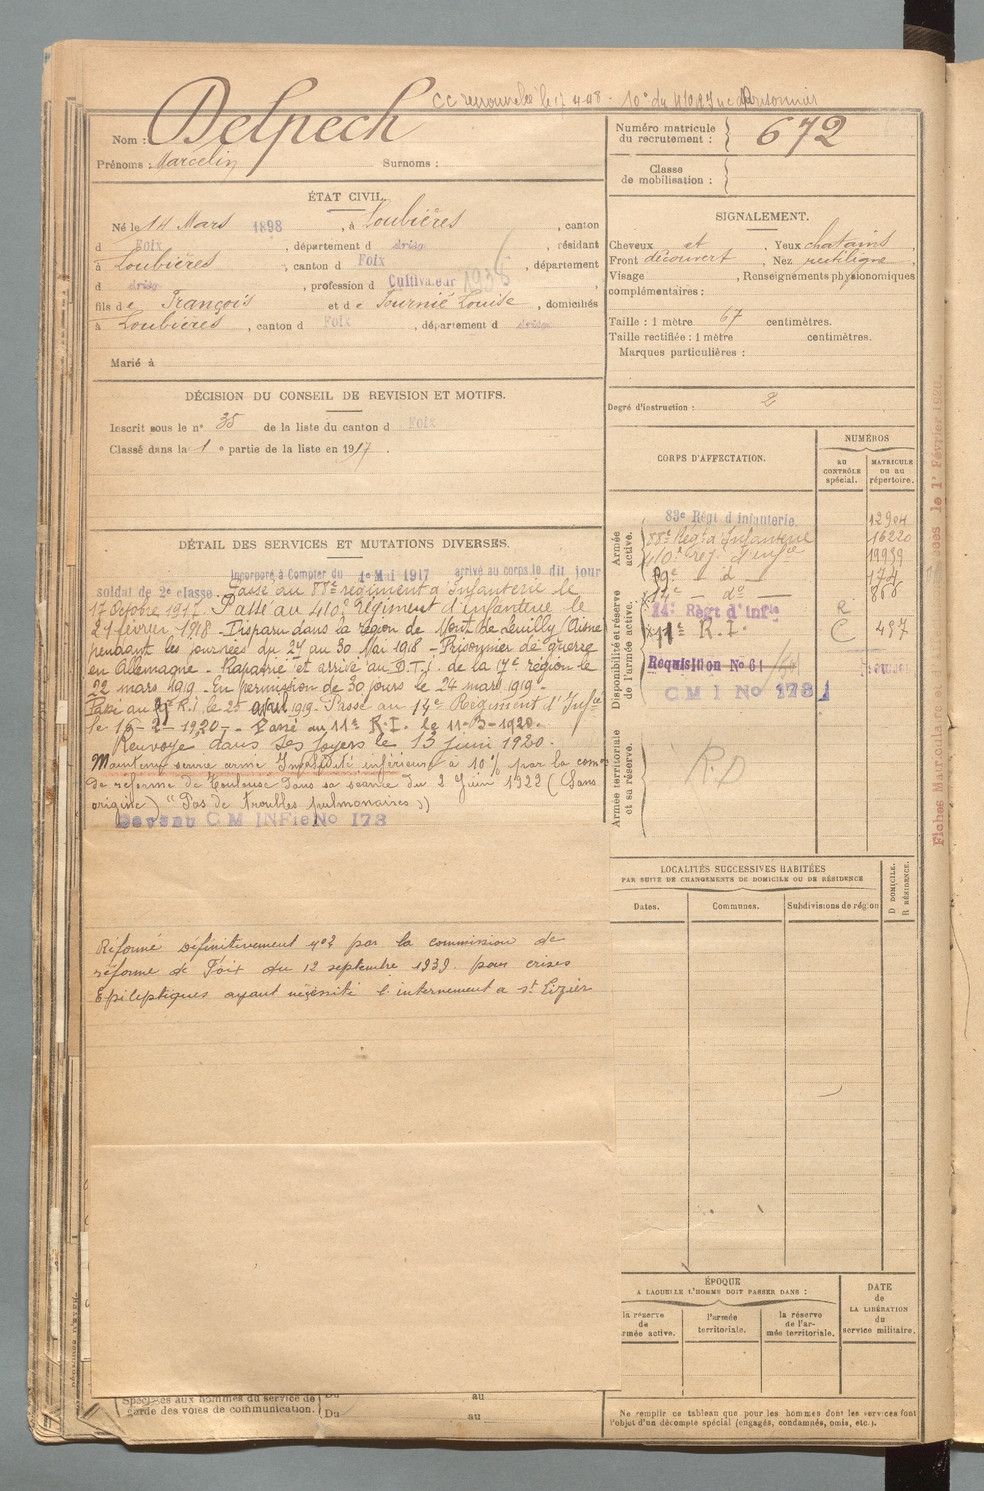 CC renouvelée le 17-4-48 - 10° du
Nom : Delpech
Prénoms : Marcelin Surnoms :
Numéro matricule du recrutement : 672
Classe de mobilisation :
ÉTAT CIVIL.
Né le 14 Mars 1898, à Loubières, canton
d Foix, département d Ariège, résidant
à Loubières, canton d Foix, département
d Ariège, profession d Cultivateur 1938
fils de François et de Fournié Louise, domiciliés
à Loubières, canton d Foix, département d Ariège
Marié à
SIGNALEMENT.
Cheveux et, Yeux chatains,
Front découvert, Nez rectiligne,
Visage, Renseignements physionomiques
complémentaires :
Taille : 1 mètre 67 centimètres.
Taille rectifiée : 1 mètre centimètres.
Marques particulières :
Degré d'instruction : 2
DÉCISION DU CONSEIL DE REVISION ET MOTIFS.
Inscrit sous le n° 35 de la liste du canton d Foix
Classé dans la 1e partie de la liste en 1917.
DÉTAIL DES SERVICES ET MUTATIONS DIVERSES.
Incorporé à Compter du 1e Mai 1917 arrivé au corps le dit jour
soldat de 2e classe. Passé au 88e régiment d'Infanterie le
17 Octobre 1917. Passé au 410e Régiment d'infanterie le
21 février 1918 - Disparu dans la région de Mont de Leuilly (Aisne)
pendant les journées du 27 au 30 Mai 1918 - Prisonnier de guerre
en Allemagne - Rapatrié et arrivé au D.T.I. de la 17e région le
22 mars 1919 - En permission de 30 jours le 24 mars 1919 -
Passé au R.I. le 25 avril 1919 - Passé au 14e Régiment d'Infie
le 16-2-1920 - Passé au 11e R.I. le 11-3-1920.
Renvoyé dans ses foyers le 13 juin 1920.
Maintenu service armé Invalidité inférieure à 10% par la comon
de réforme de Toulouse dans sa séance du 2 Juin 1922 (Sans
origine) "Pas de troubles pulmonaires"
Devenu C M INFie No 173
Réformé Définitivement n°2 par la commission de
réforme de Foix du 12 septembre 1939 pour crises
Epileptiques ayant nécessité l'internement a st Lizier
CORPS D'AFFECTATION.
NUMÉROS
au contrôle spécial.
matricule ou au répertoire.
Armée active.
83e Régt d infanterie. 12904
88e Régt d'Infanterie 16220
410e Rég. d'Infie 19939
9e - d -
14e - do - 868
Disponibilité et réserve de l'armée active.
14e Régt d'Infie R
11e R.I. C 497
Requisition No 61
C M I No 173
Armée territoriale et sa réserve.
R.D
LOCALITÉS SUCCESSIVES HABITÉES
PAR SUITE DE CHANGEMENTS DE DOMICILE OU DE RÉSIDENCE
Dates.
Communes.
Subdivisions de région
D DOMICILE.
R RÉSIDENCE.
ÉPOQUE
A LAQUELLE L'HOMME DOIT PASSER DANS :
la réserve de rmée active.
l'armée territoriale.
la réserve de l'armée territoriale.
DATE de LA LIBÉRATION du service militaire.
Spéciales aux hommes du service de
garde des voies de communication.
Du au
Du au
Ne remplir ce tableau que pour les hommes dont les services font
l'objet d'un décompte spécial (engagés, condamnés, omis, etc.).